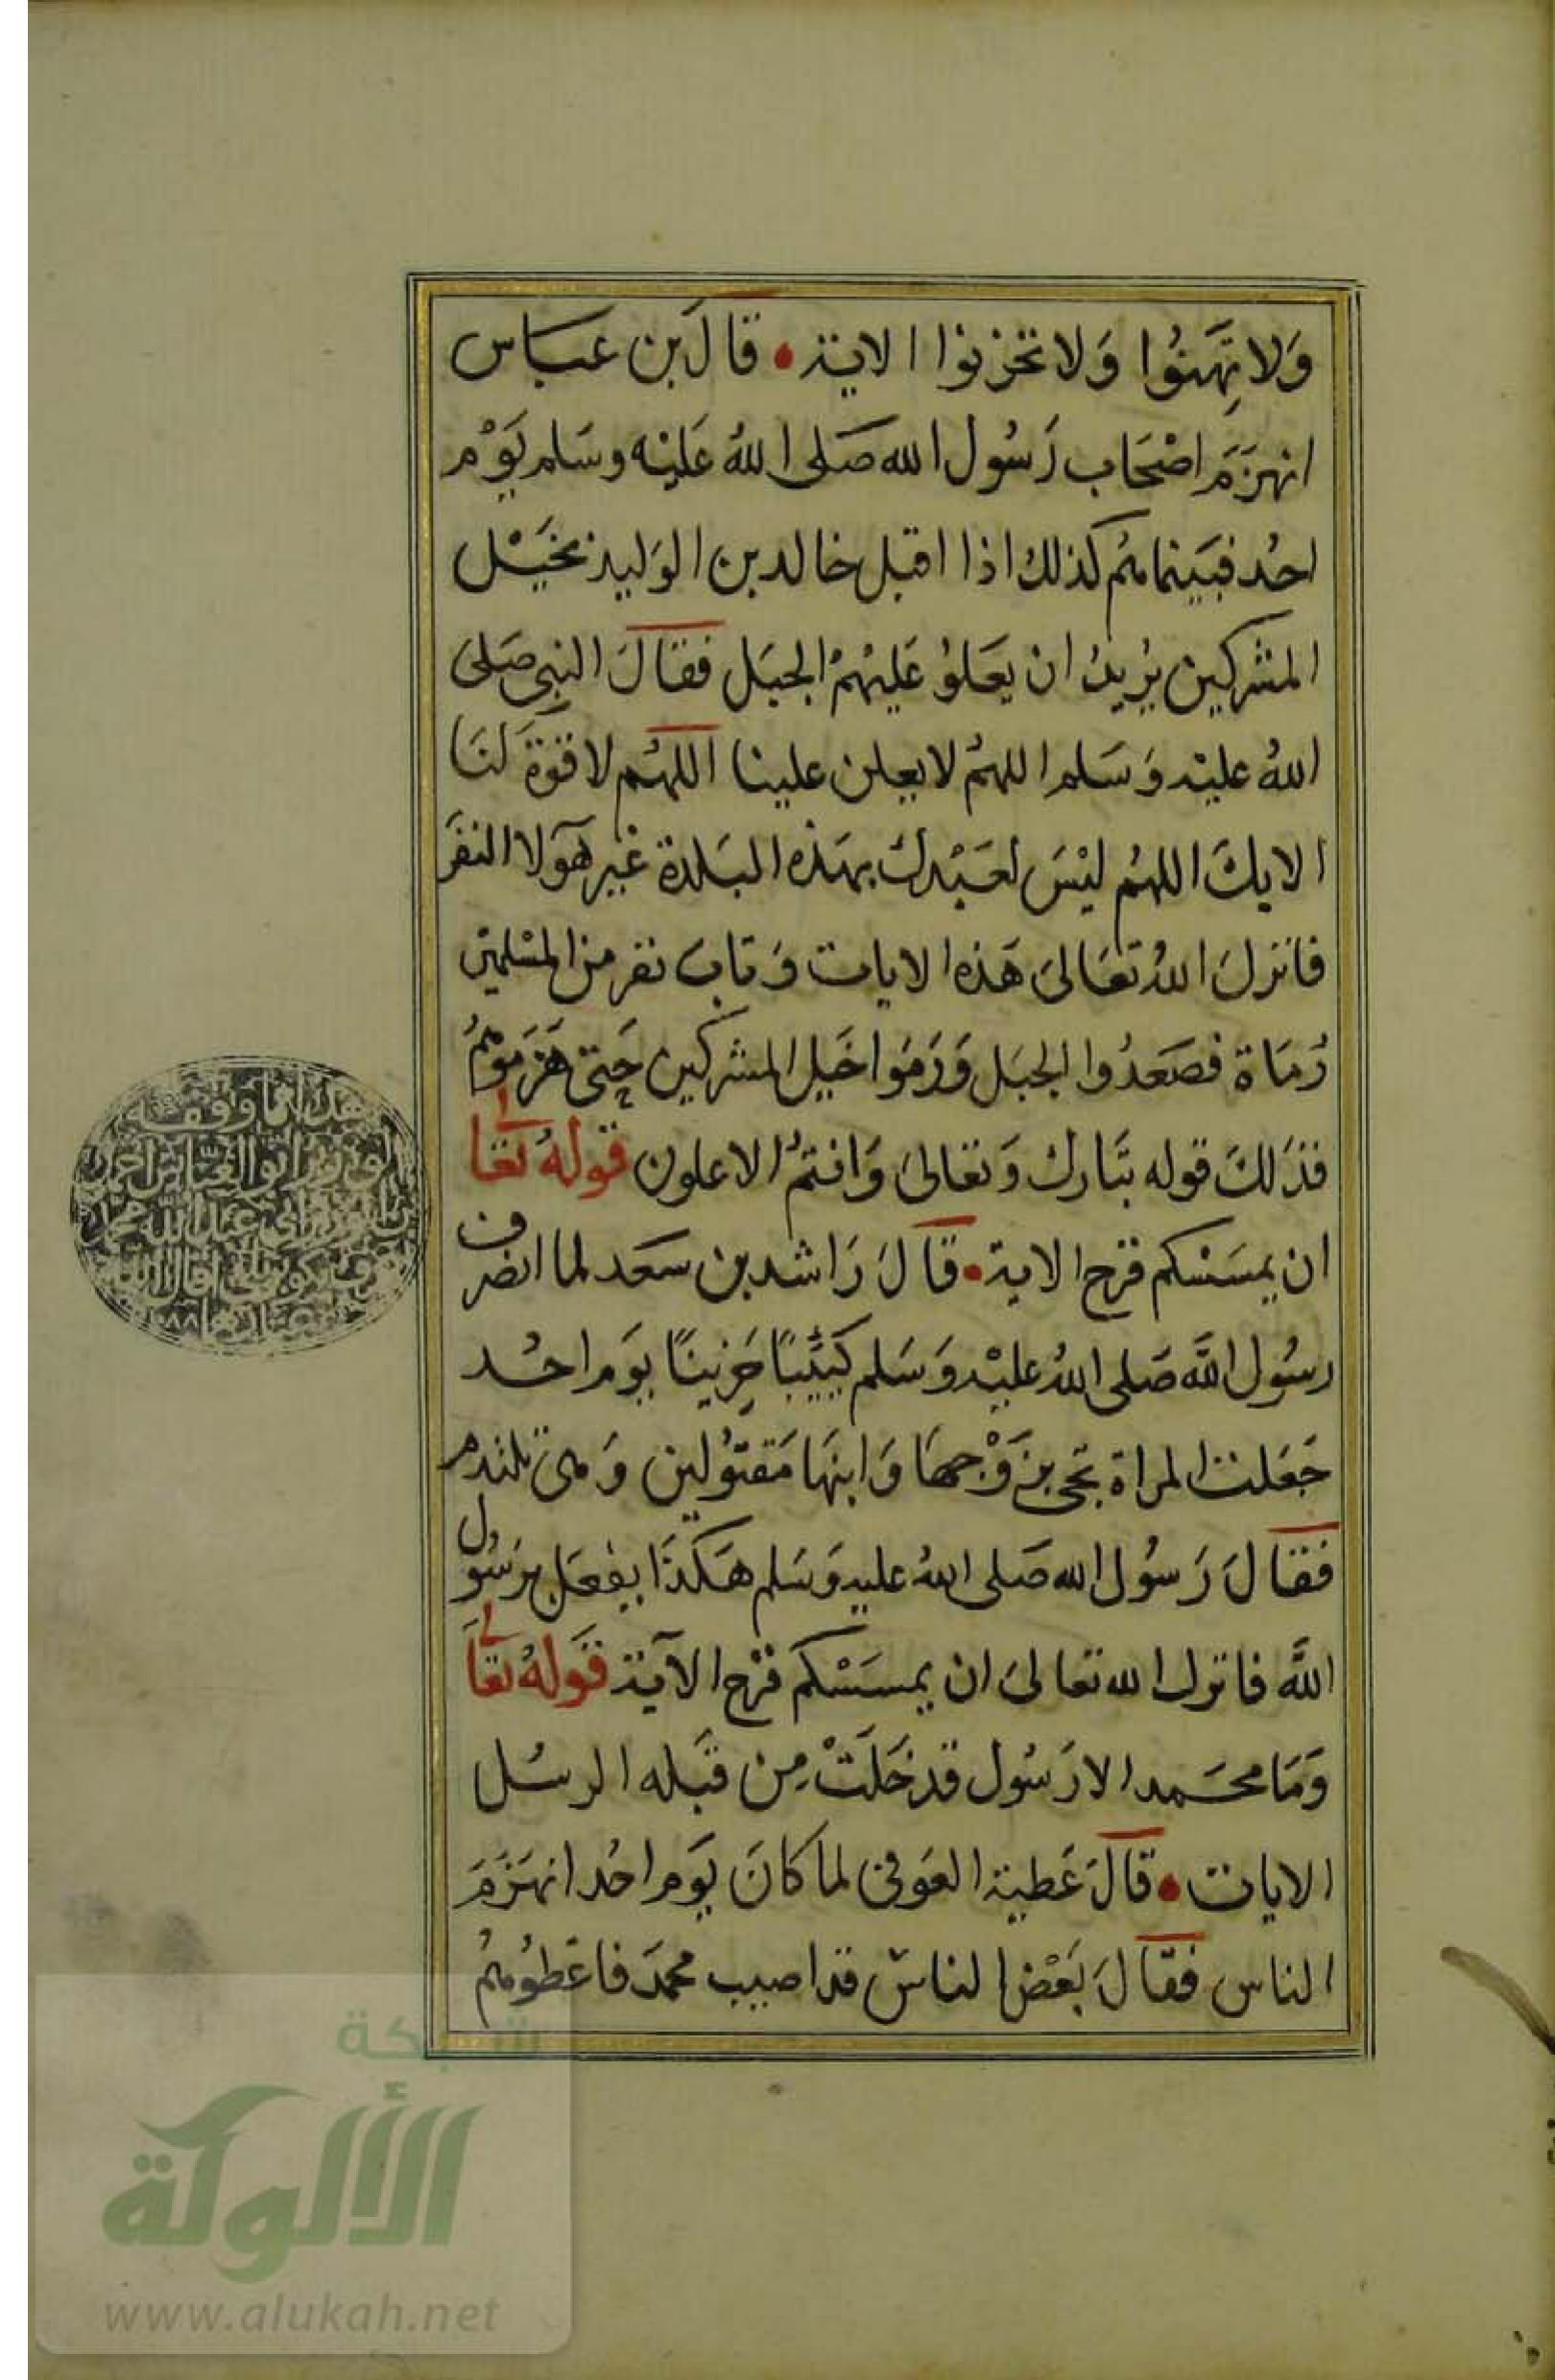 وَلا تَهِنُوا وَلا تحزنوا الاية • قالَ بن عباس
انهزَمَ اصْحَاب رَسُول الله صَلى اللهُ عَليْه وسَلم يَوْم
احُد فبَينما هُم كذلك اذا اقبل خالد بن الوَليد بخَيْل
المشركين يُريدُ ان يعَلوُ عَليْهمُ الجبَل فقالَ النبي صَلى
اللهُ عليْه وَسَلم اللهمُ لا يعلن علينا اللهُم لا قوة لنَا
الا بكَ اللهُم ليْسَ لعَبْدك بهَذه البَلدة غير هَولا النفَر
فانزلَ اللهُ تعَالىَ هَذه الايات وَتاب نفر من المسْلمين
رُمَاة فصَعَدُوا الجبَل وَرَمَوا خَيل المشركين حَتى هَزمَوهُمُ
فذَلكَ قوله تبَارك وَتعَالىَ وَانتمُ الاعلون قولهُ تعَا لى
ان يمسَسْكم قرح الاية • قالَ رَاشد بن سَعَد لما انصرف
رسُول اللَّه صَلى اللهُ عليْه وَسَلم كَئيبًا حَزينًا يوَم احُد
جَعَلت المراة تجى بزَوْجهَا وَابنهَا مَقتوُلين وَهى تلتدم
فقالَ رَسُول الله صَلى اللهُ عليه وَسَلم هَكذَا يفعَل برَسُول
اللَّه فانزل الله تعالىَ ان يمسَسْكم قرْح الآية قَولهُ تعَا لى
وَمَا محَمد الا رَسُول قد خَلَتْ مِن قَبله الرسُل
الايات • قالَ عَطية العَوفى لما كانَ يَوم احُد انهَزَمَ
الناس فقالَ بَعْض الناسَ قد اصيب محمدَ فاعْطُوهُمُ
هذا ما وقفه
الوزير ابو العباس احمد
شبكة
الألوكة
www.alukah.net